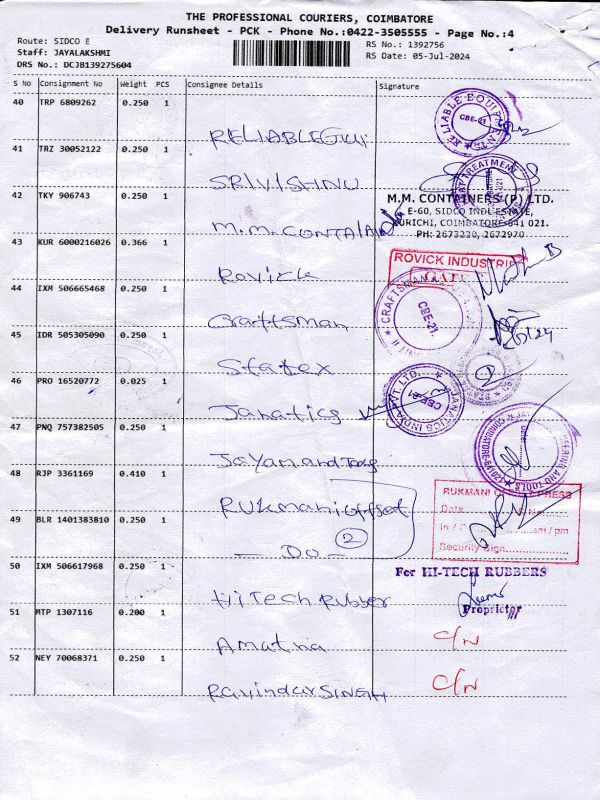 THE PROFESSIONAL COURIERS, COIMBATORE
Delivery Runsheet - PCK - Phone No.:0422-3505555 - Page No.:4
Route: SIDCO E
RS No.: 1392756
Staff: JAYALAKSHMI
RS Date: 05-Jul-2024
DRS No.: DCJB139275604
S No Consignment No Weight PCS Consignee Details Signature
40 TRP 6809262 0.250 1
RELIABLE EQUIPMENTS
CBE-21
RELIABLE
41 TRZ 30052122 0.250 1
SRIVISHNU
TREATMENT
42 TKY 906743 0.250 1
M.M. CONTAINERS (P) LTD.
E-60, SIDCO INDL ESTATE,
KURICHI, COIMBATORE-641 021.
PH: 2673220, 2672970
M.M. CONTAIN
43 KUR 6000216026 0.366 1
ROVICK INDUSTRI
Rovick
44 IXM 506665468 0.250 1
CRAFTSMAN
CBE-21.
Craftsman
45 IDR 505305090 0.250 1
Statex
46 PRO 16520772 0.025 1
JANATICS INDIA PVT. LTD.
Janatics
47 PNQ 757382505 0.250 1
COIMBATORE
AND TOOLS
Jayam and Tools
48 RJP 3361169 0.410 1
RUKMANI OFFSET PRESS
Date
In / am / pm
Security Sign
Rukmani offset
49 BLR 1401383810 0.250 1
2
- DO -
50 IXM 506617968 0.250 1
For HI-TECH RUBBERS
Proprietor
Hi Tech Rubber
51 MTP 1307116 0.200 1
C/N
Amatha
52 NEY 70068371 0.250 1
C/N
Ravindar SINGH